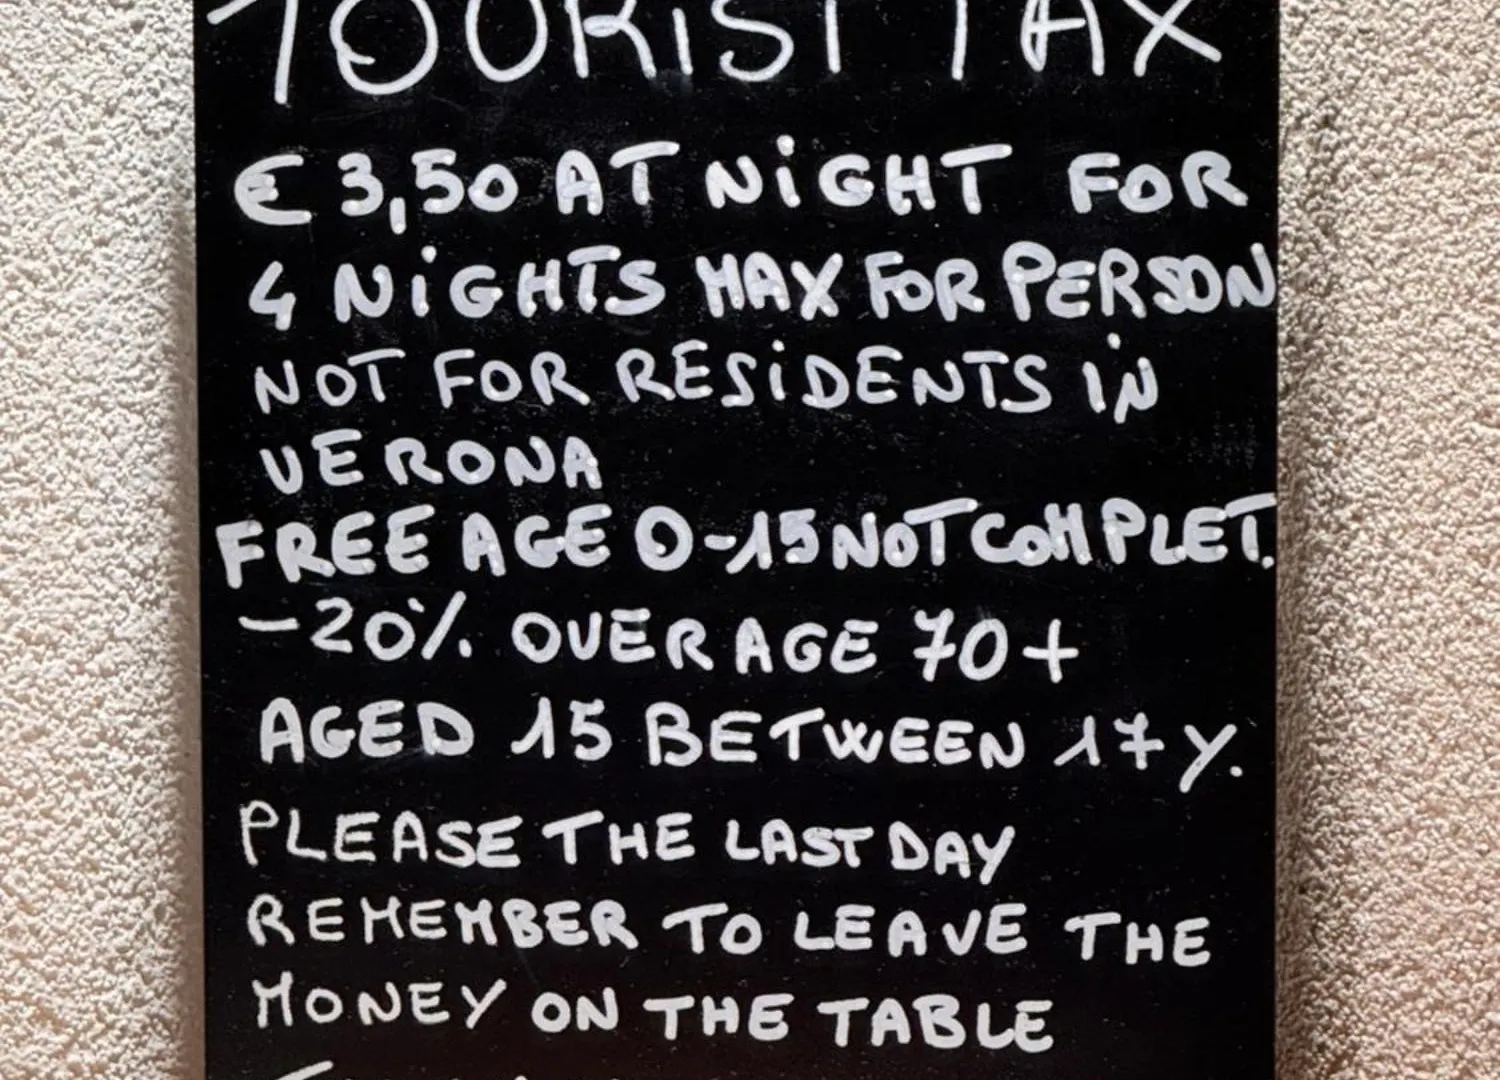 TOURIST TAX
€ 3,50 AT NiGHT FOR
4 NiGHTS MAX FOR PERSON
NOT FOR RESiDENTS iN
VERONA
FREE AGE 0-15 NOT COMPLET.
-20% OVER AGE 70+
AGED 15 BETWEEN 17 y.
PLEASE THE LAST DAY
REMEMBER TO LEAVE THE
MONEY ON THE TABLE